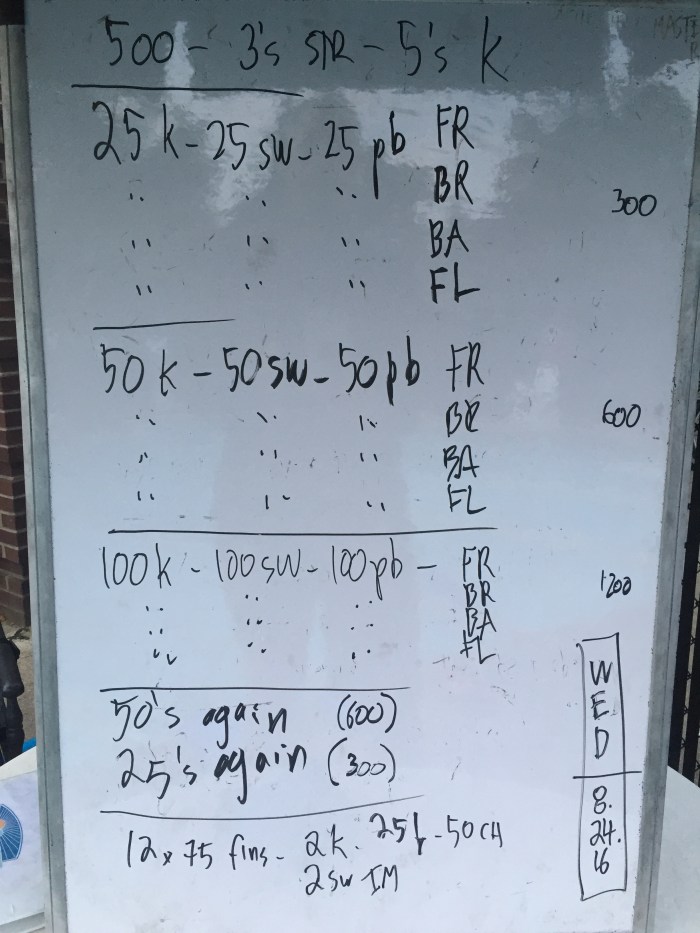 500 - 3's STR - 5's K
25 k - 25 sw - 25 pb FR
" " " BR
300
" " " BA
" " " FL
50 k - 50 sw - 50 pb FR
" " " BR
600
" " " BA
" " " FL
100 k - 100 sw - 100 pb - FR
" " " BR
1200
" " " BA
" " " FL
50's again (600)
25's again (300)
12 x 75 fins - 2k. 25 - 50 CH
2 sw IM
WED
8.
24.
16